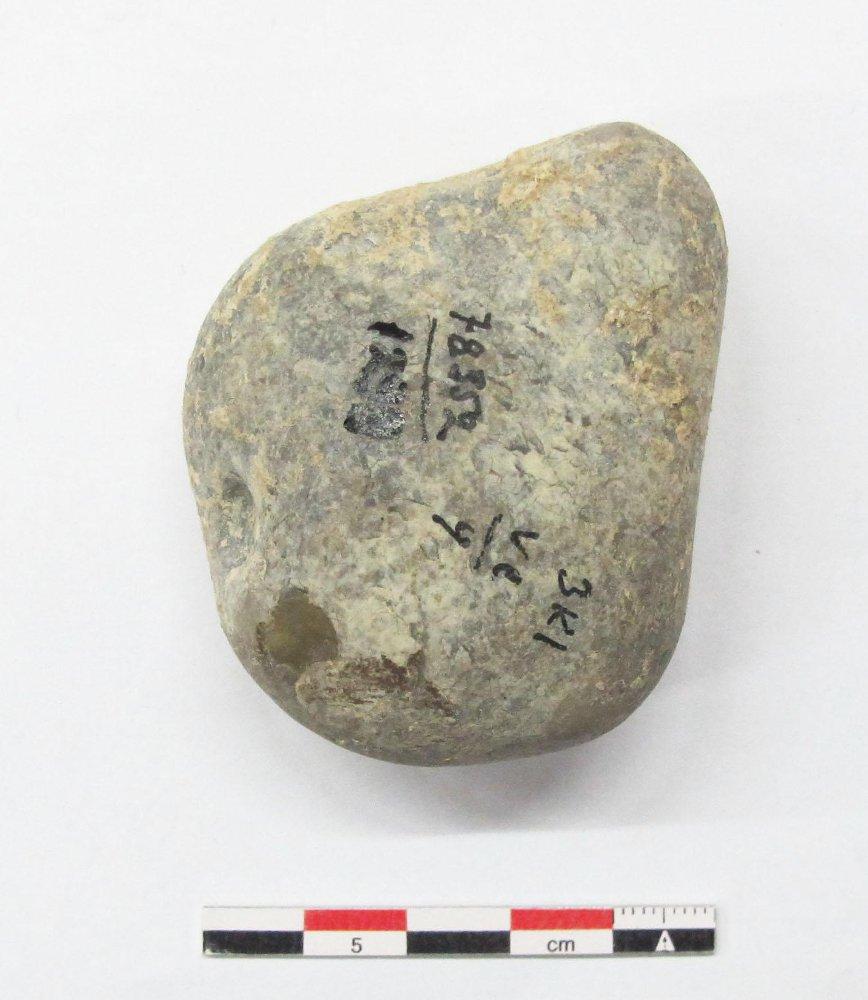 78352
12
Ve
4
3K1
5 cm